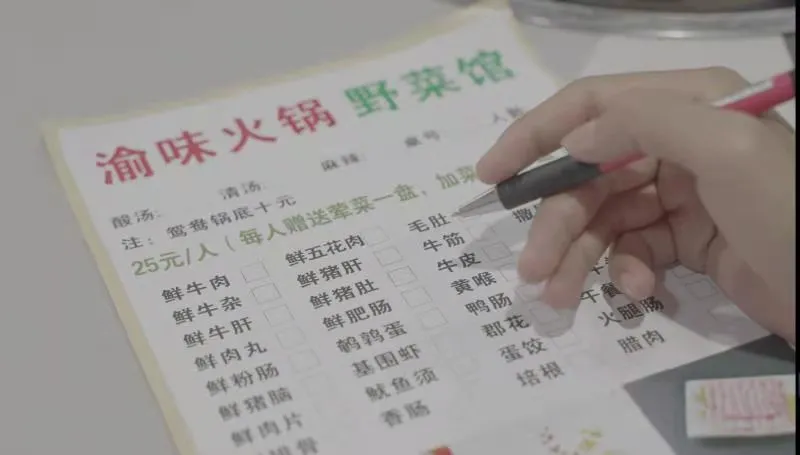 渝味火锅 野菜馆
酸汤： 清汤： 麻辣： 桌号： 人数
注：鸳鸯锅底十元
25元/人（每人赠送荤菜一盘，加菜
鲜牛肉 鲜五花肉 毛肚
鲜牛杂 鲜猪肝 牛筋 撒
鲜牛肝 鲜猪肚 牛皮
鲜肉丸 鲜肥肠 黄喉 牛
鲜粉肠 鹌鹑蛋 鸭肠 午餐
鲜猪脑 基围虾 郡花 火腿肠
鲜肉片 鱿鱼须 蛋饺 腊肉
排骨 香肠 培根